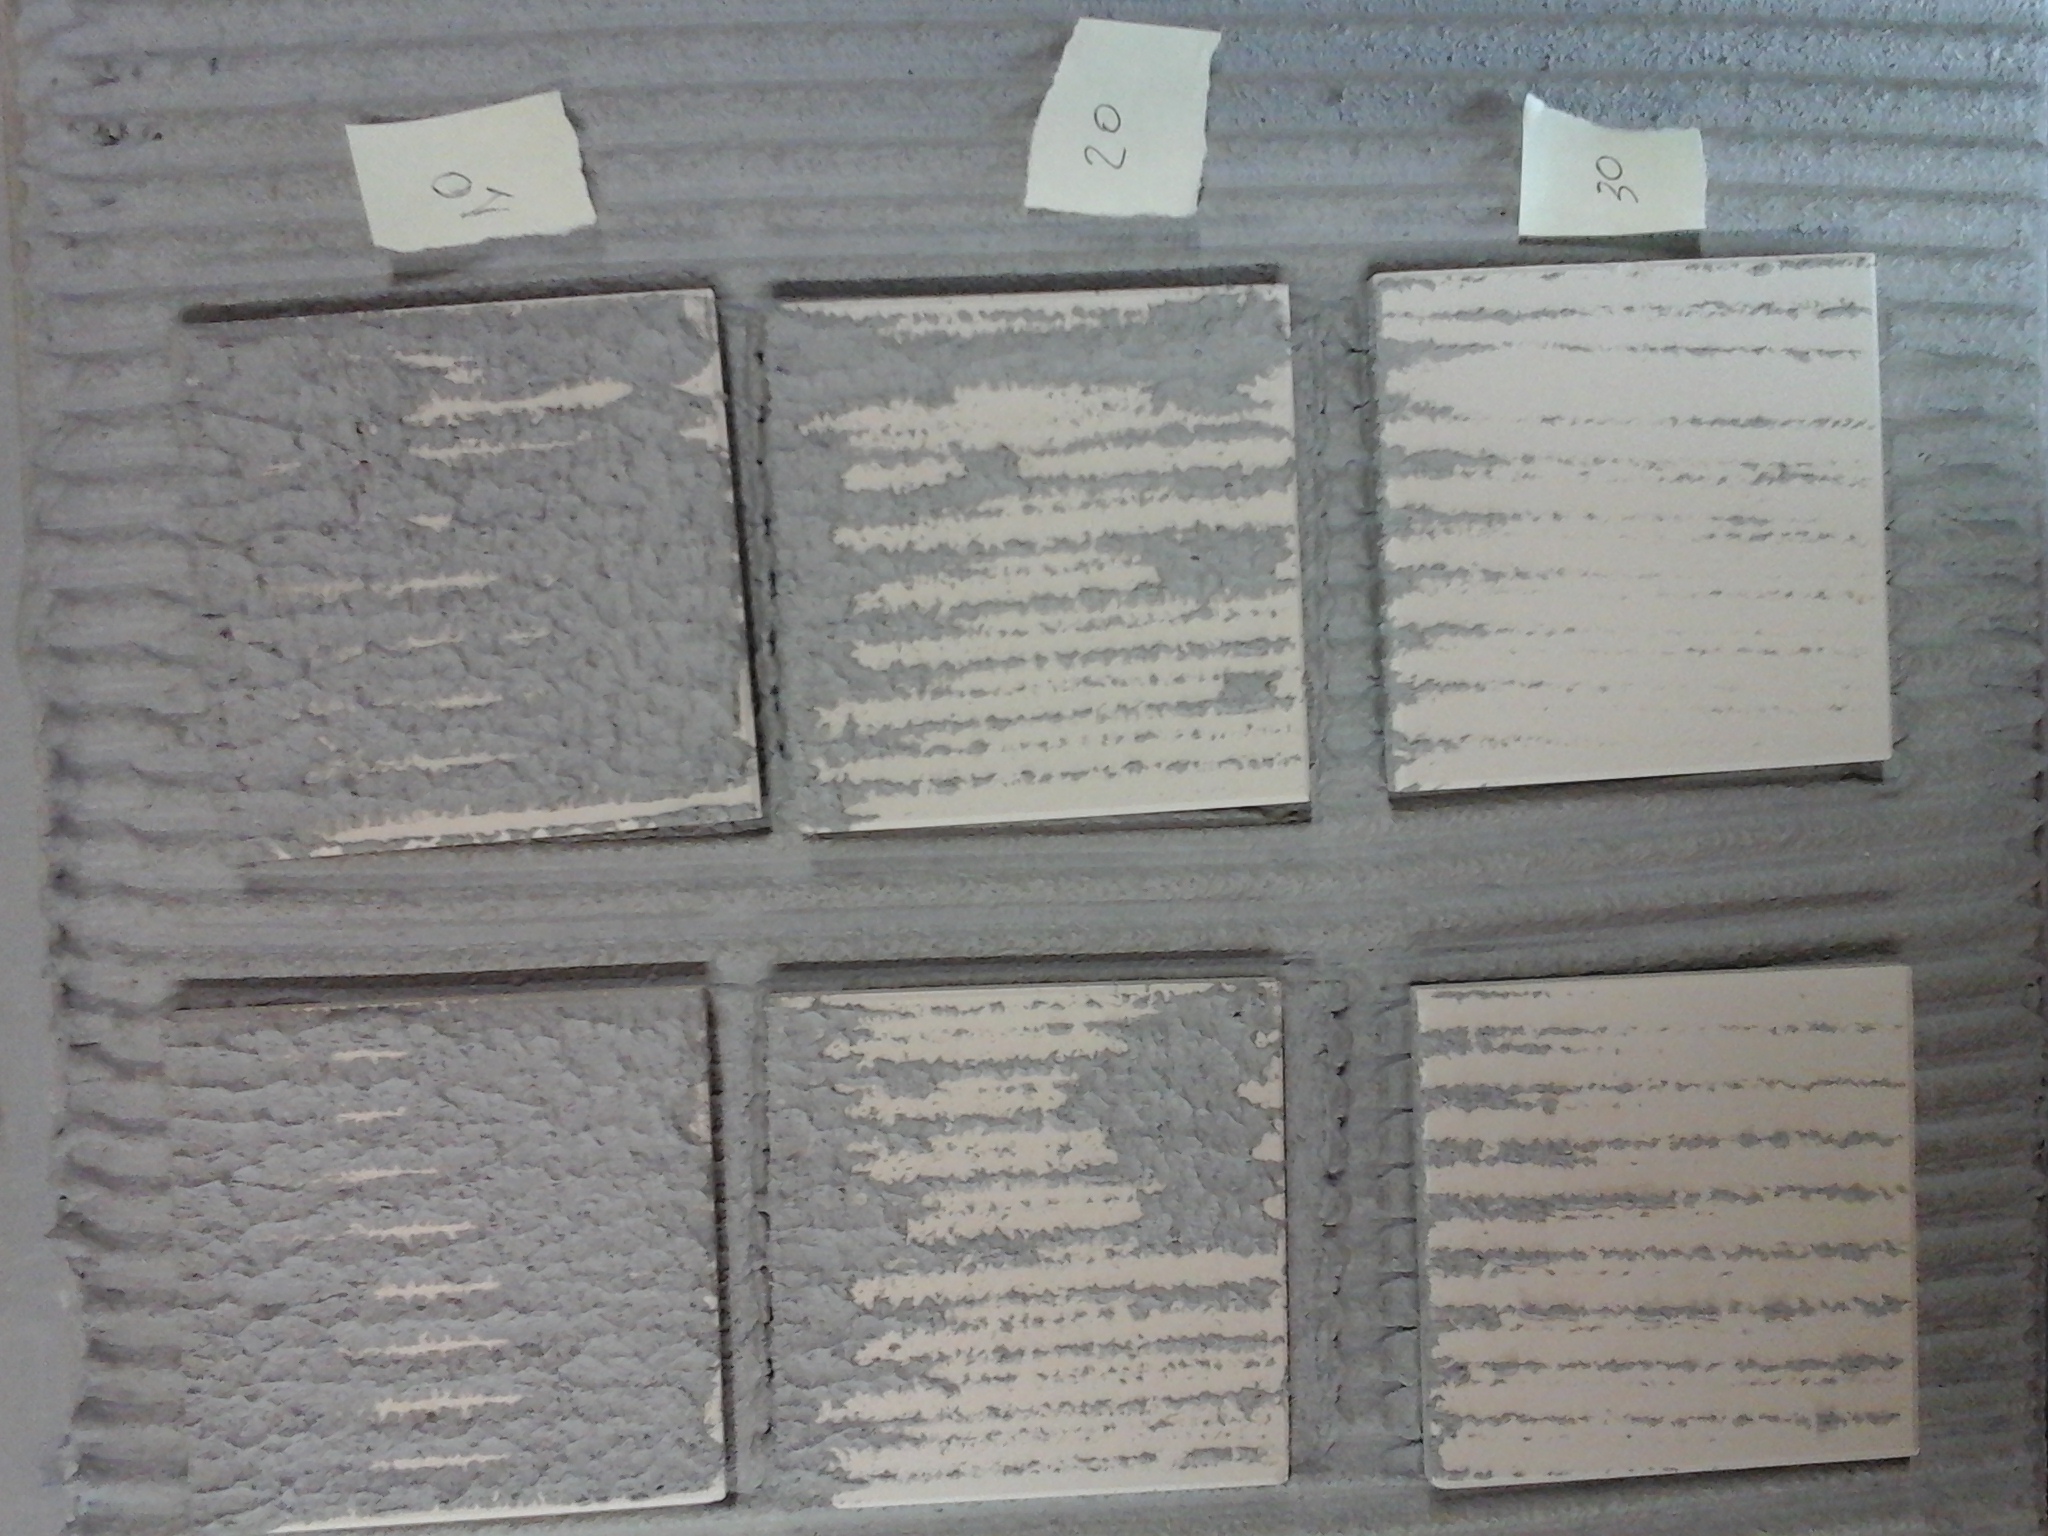 10
20
30